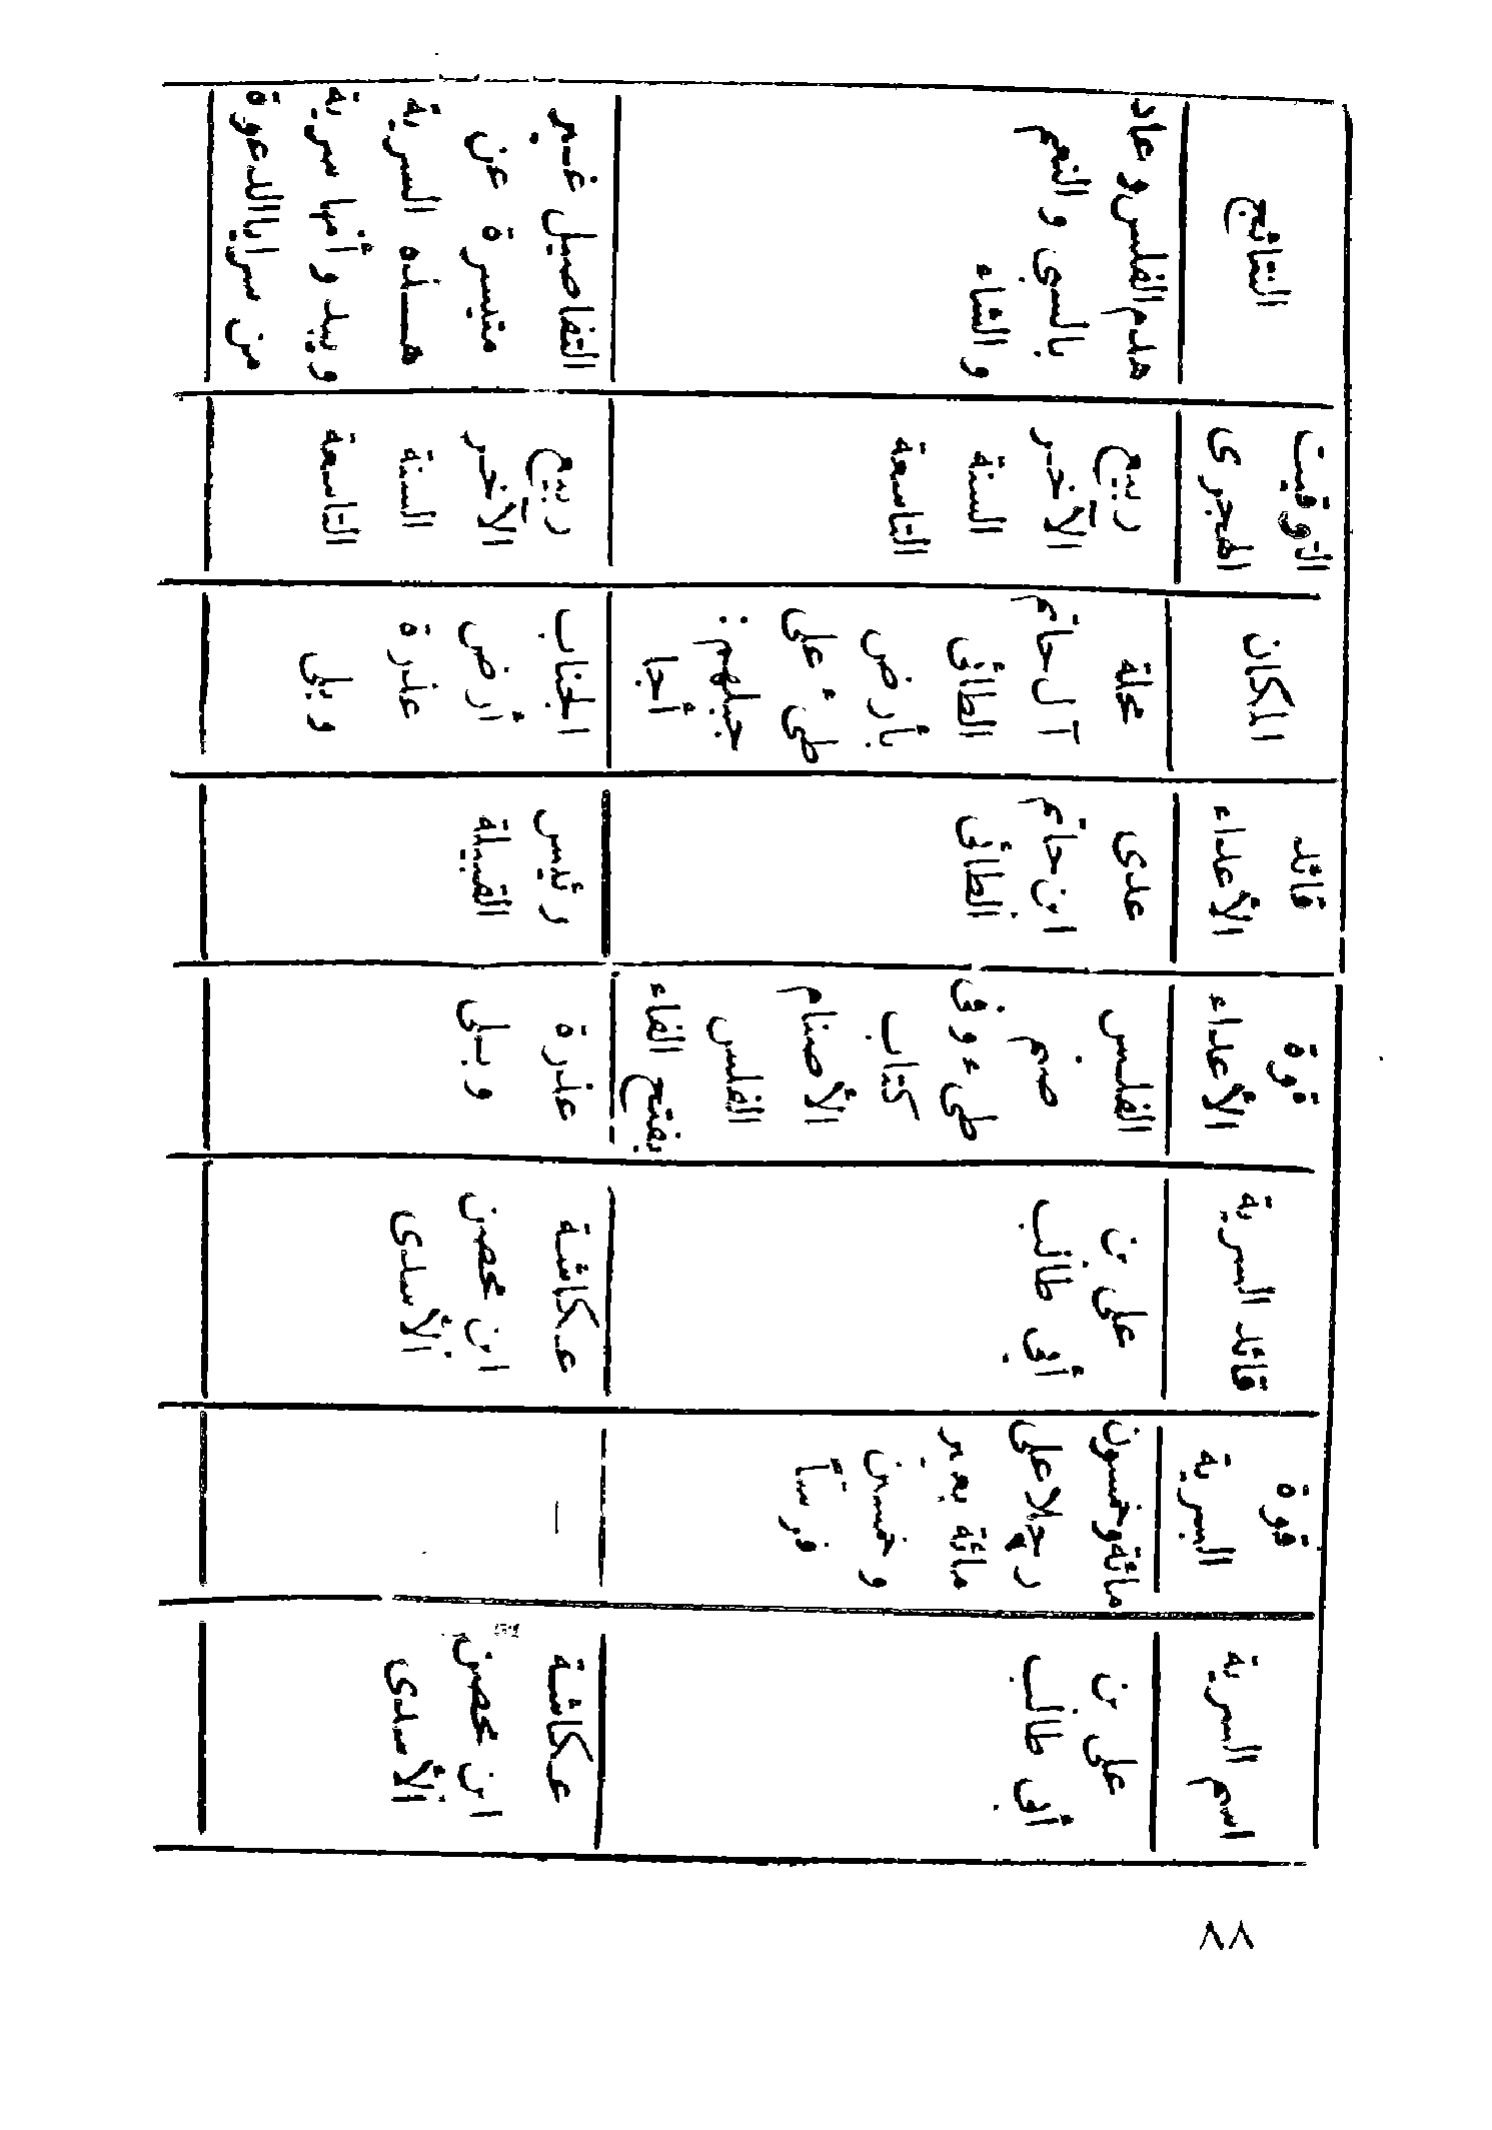 اسم السرية
قوة
السرية
قائد السرية
قوة
الأعداء
قائد
الأعداء
المكان
التوقيت
الهجرى
النتائج
على بن
أبى طالب
مائة وخمسون
رجلا على
مائة بعير
وخمسين
فرسًا
على بن
أبى طالب
الفلس
صنم
طىء وفى
كتاب
الأصنام
الفلس
بفتح الفاء
عدى
ابن حاتم
الطائى
محلة
آل حاتم
الطائى
بأرض
طىء على
جبلهم :
أجا
ربيع
الآخر
السنة
التاسعة
هدم الفلس وعاد
بالسبى والنعم
والشاء
عكاشة
ابن محصن
الأسدى
—
عكاشة
ابن محصن
الأسدى
عذرة
وبلى
رئيس
القبيلة
الجناب
أرض
عذرة
وبلى
ربيع
الآخر
السنة
التاسعة
التفاصيل غير
متيسرة عن
هذه السرية
ويبدو أنها سرية
من سرايا الدعوة
٨٨